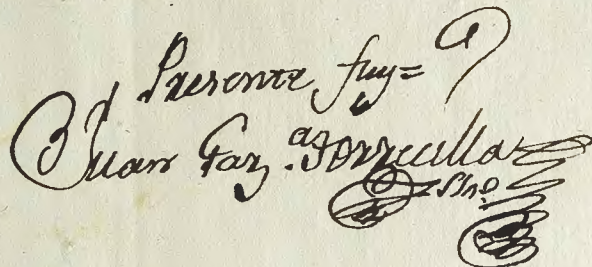 Presente fuy=
Juan Garz.ª Torrecilla
Essno